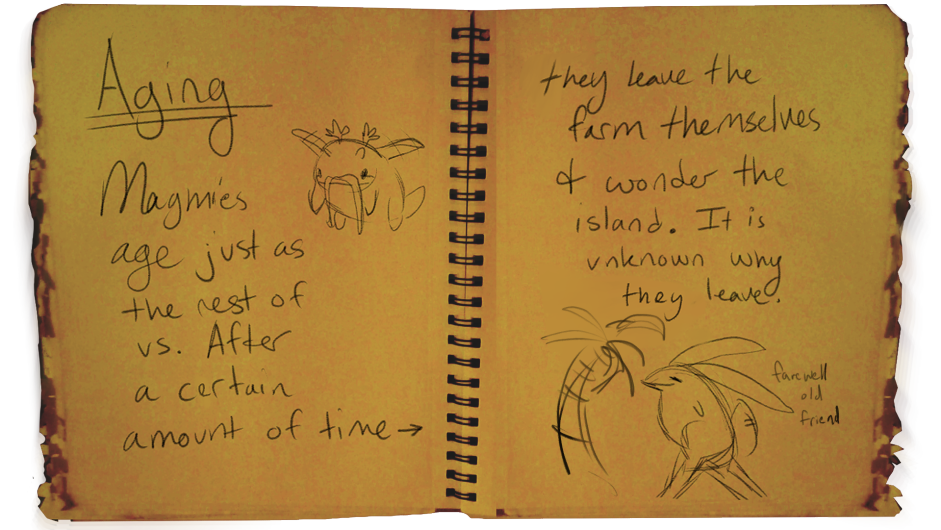 Aging
Magmies
age just as
the rest of
us. After
a certain
amount of time →
they leave the
farm themselves
& wonder the
island. It is
unknown why
they leave.
farewell
old
friend